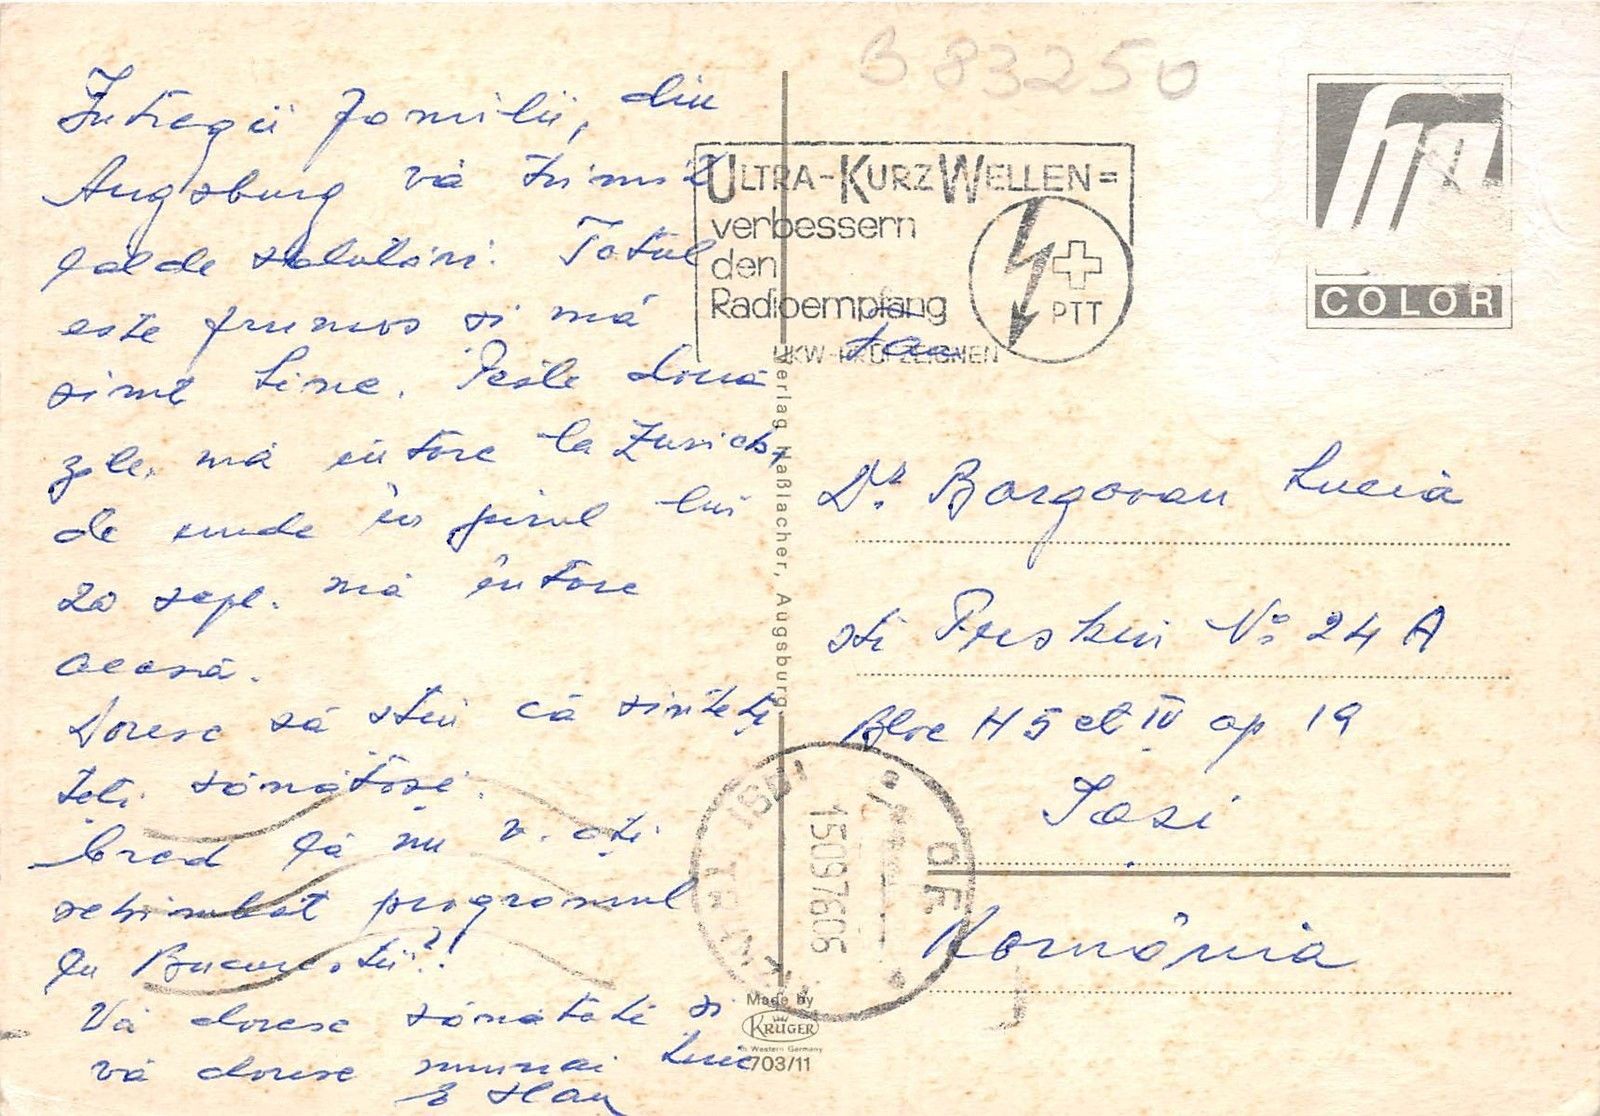 B 83250
Întregii familii, din
Augsburg vă trimit
calde salutări. Totul
este frumos și mă
simt bine. Peste două
zile mă întorc la Zurich,
de unde în jurul lui
20 sept. mă întorc
acasă.
Doresc să știu că sînteți
toți sănătoși.
Cred că nu v-ați
schimbat programul
cu București?!
Vă doresc sănătate și
vă doresc numai bine
ULTRA-KURZWELLEN=
verbessern
den
Radioempfang
PTT
UKW-PRÜFZEICHEN
COLOR
Verlag Haßlacher, Augsburg
Dr. Borgovan Lucia
Nº 24 A
Bloc H5 et IV ap 19
Iași
România
IAȘI
15097606
O.F.
Made by
KRÜGER
in Western Germany
703/11